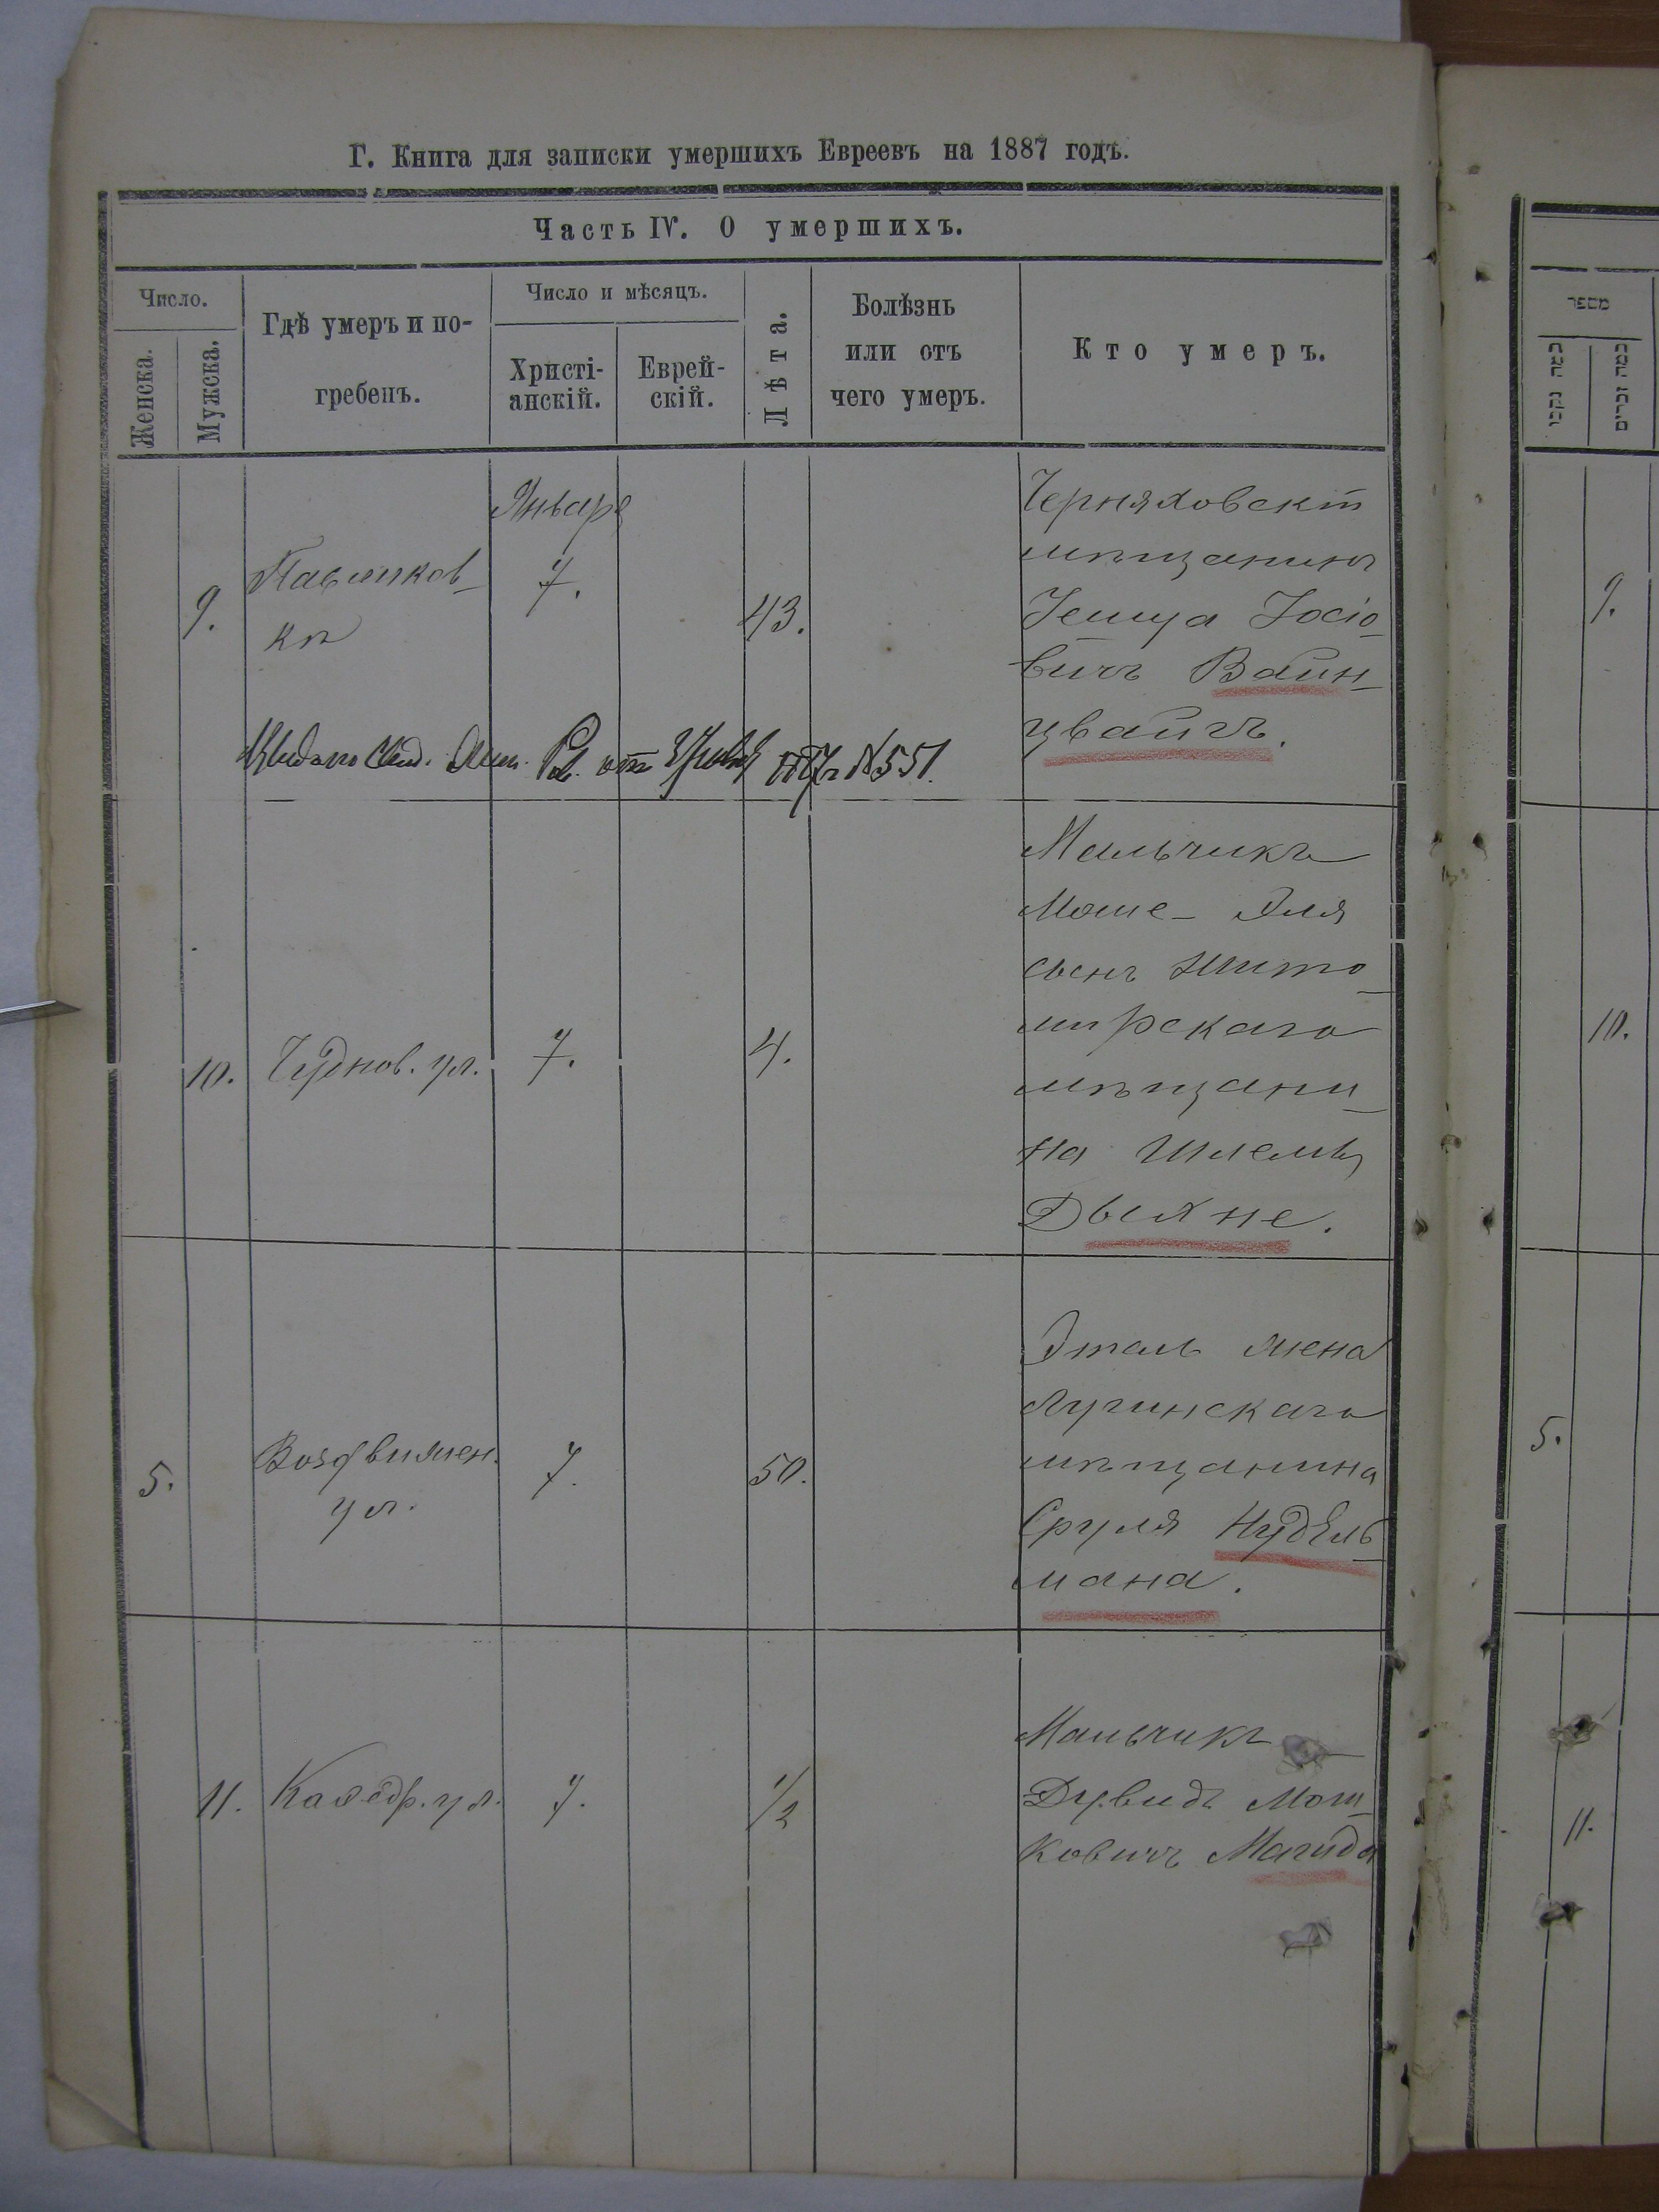 Г. Книга для записки умершихъ Евреевъ на 1887 годъ.
Часть IV. О умершихъ.
Число.
Женска.
Мужска.
Гдѣ умеръ и по-
гребенъ.
Число и мѣсяцъ.
Христі-
анскій.
Еврей-
скій.
Лѣта.
Болѣзнь
или отъ
чего умеръ.
Кто умеръ.
9.
Павликов-
кѣ
Января
7.
43.
Черняховскій
мѣщанинъ
Іешуа Іосіо-
вичъ Вайн-
цвайгъ.
от № 551.
10.
Чуднов. ул.
7.
4.
Мальчикъ
Моше-Эля
сынъ Жито-
мирскаго
мѣщани-
на Шлемы
Дыхне.
5.
Воздвижен.
ул.
7.
50.
Этель жена
Лугинскаго
мѣщанина
Сруля Нудель-
мана.
11.
Каѳедр. ул.
7.
1/2
Мальчикъ
Дувидъ Мош-
ковичъ Магида
מספר
9.
10.
5.
11.